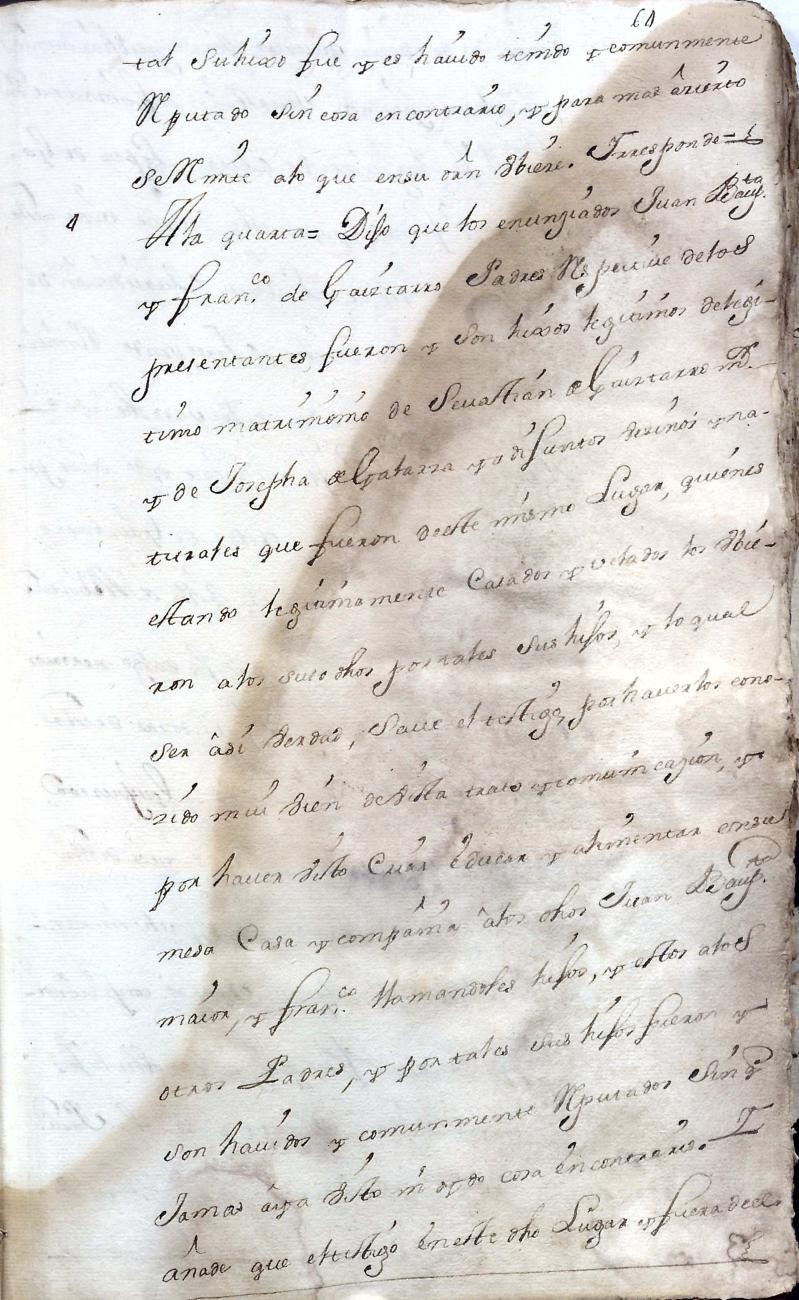 64
tal su hixo fue y es havido tenido y comunmente
Rputado sin cosa encontrario, y para mas acierto
se Rmite alo que ensu orn Vbiere. Yrresponde=
4 Ala quarta= Dijo que los enunziados Juan Baupta.
y Fran.co de Gaiztarro Padres Respective delos
presentantes fueron y son hixos legitimos delegi-
timo matrimonio de Sevastian de Gaiztarro m.r
y de Josepha de Galarza ya difuntos Vezinos y na-
turales que fueron deeste mismo Lugar, quienes
estando legitimamente Casados y velados los Vbie-
ron alos suso dhos por tales sus hijos, y lo qual
ser asi Verdad, Save el testigo, por haverlos cono-
zido mui bien deVista trato y comunicazion, y
por haver Visto Criar educar y alimentar ensu
mesa Casa y compañia alos dhos Juan Baupta.
maior, y Fran.co llamandoles hijos, y estos alos
otros Padres, y por tales sus hijos fueron y
son havidos y comunmente Rputados Sin q.e
Jamas aya Visto ni oydo cosa encontrario. Y
añade que el testigo eneste dho Lugar y fuera deel